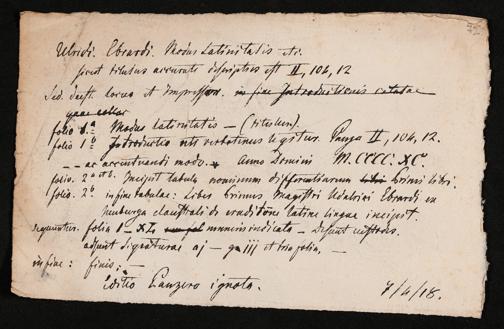 Ulrici. Ebrardi. Modus Latinitatis etc.
sicut titulus accurate descriptus est II, 104, 12
Sed. deest. locus et impressor. in fine Introductionis
folio 1.a Modus latinitatis — (titulus).
folio 1 b Introductio uti verbotenus legitur. Panzer II, 104, 12.
-- ac accentuandi modo. Anno Domini M. CCCC. XC.
folio. 2 a et b. Incipit tabula nominum differentiarum libri primi libri.
folio. 2 b in fine tabulae: Liber primus Magistri Udalrici Ebrardi ex
claustrali de eruditione latine lingue incipit.
sequuntur. folia XL, numeris indicata — Desunt custodes.
adsunt signaturae aj — g iij et folia, —
in fine: finis. —
Editio Panzero ignota.
7/4/18.